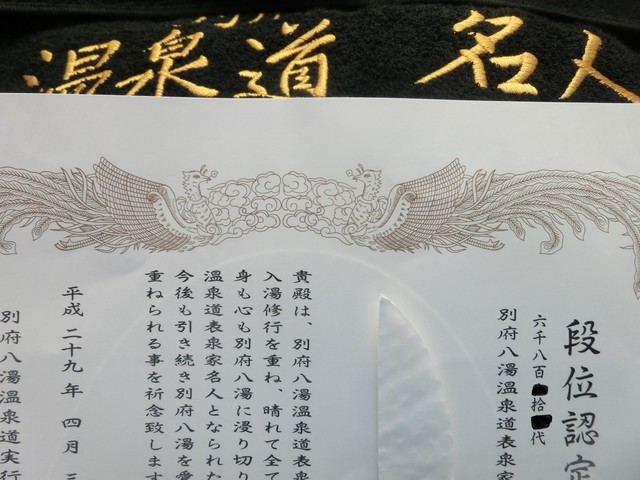 温泉道 名人
段位認定
六千八百 拾 代
別府八湯温泉道表泉家
貴殿は、別府八湯温泉道表泉
入湯修行を重ね、晴れて全て
身も心も別府八湯に浸り切り
温泉道表泉家名人となられた
今後も引き続き別府八湯を愛
重ねられる事を祈念致します
平成二十九年 四月 三
別府八湯温泉道実行